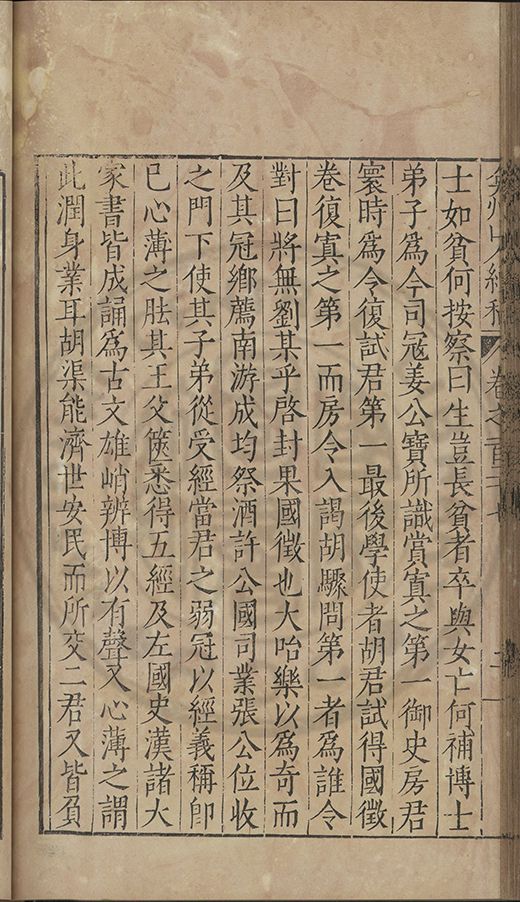 弇州山人續稿 卷之百二十 二
士如貧何按察曰生豈長貧者卒與女亡何補博士
弟子爲今司寇姜公寶所識賞寘之第一御史房君
寰時爲令復試君第一最後學使者胡君試得國徵
卷復寘之第一而房令入謁胡驟問第一者爲誰令
對曰將無劉某乎啓封果國徵也大咍樂以爲奇而
及其冠鄉薦南游成均祭酒許公國司業張公位收
之門下使其子弟從受經當君之弱冠以經義稱卽
已心薄之胠其王父篋悉得五經及左國史漢諸大
家書皆成誦爲古文雄峭辨博以有聲又心薄之謂
此潤身業耳胡渠能濟世安民而所交二君又皆負